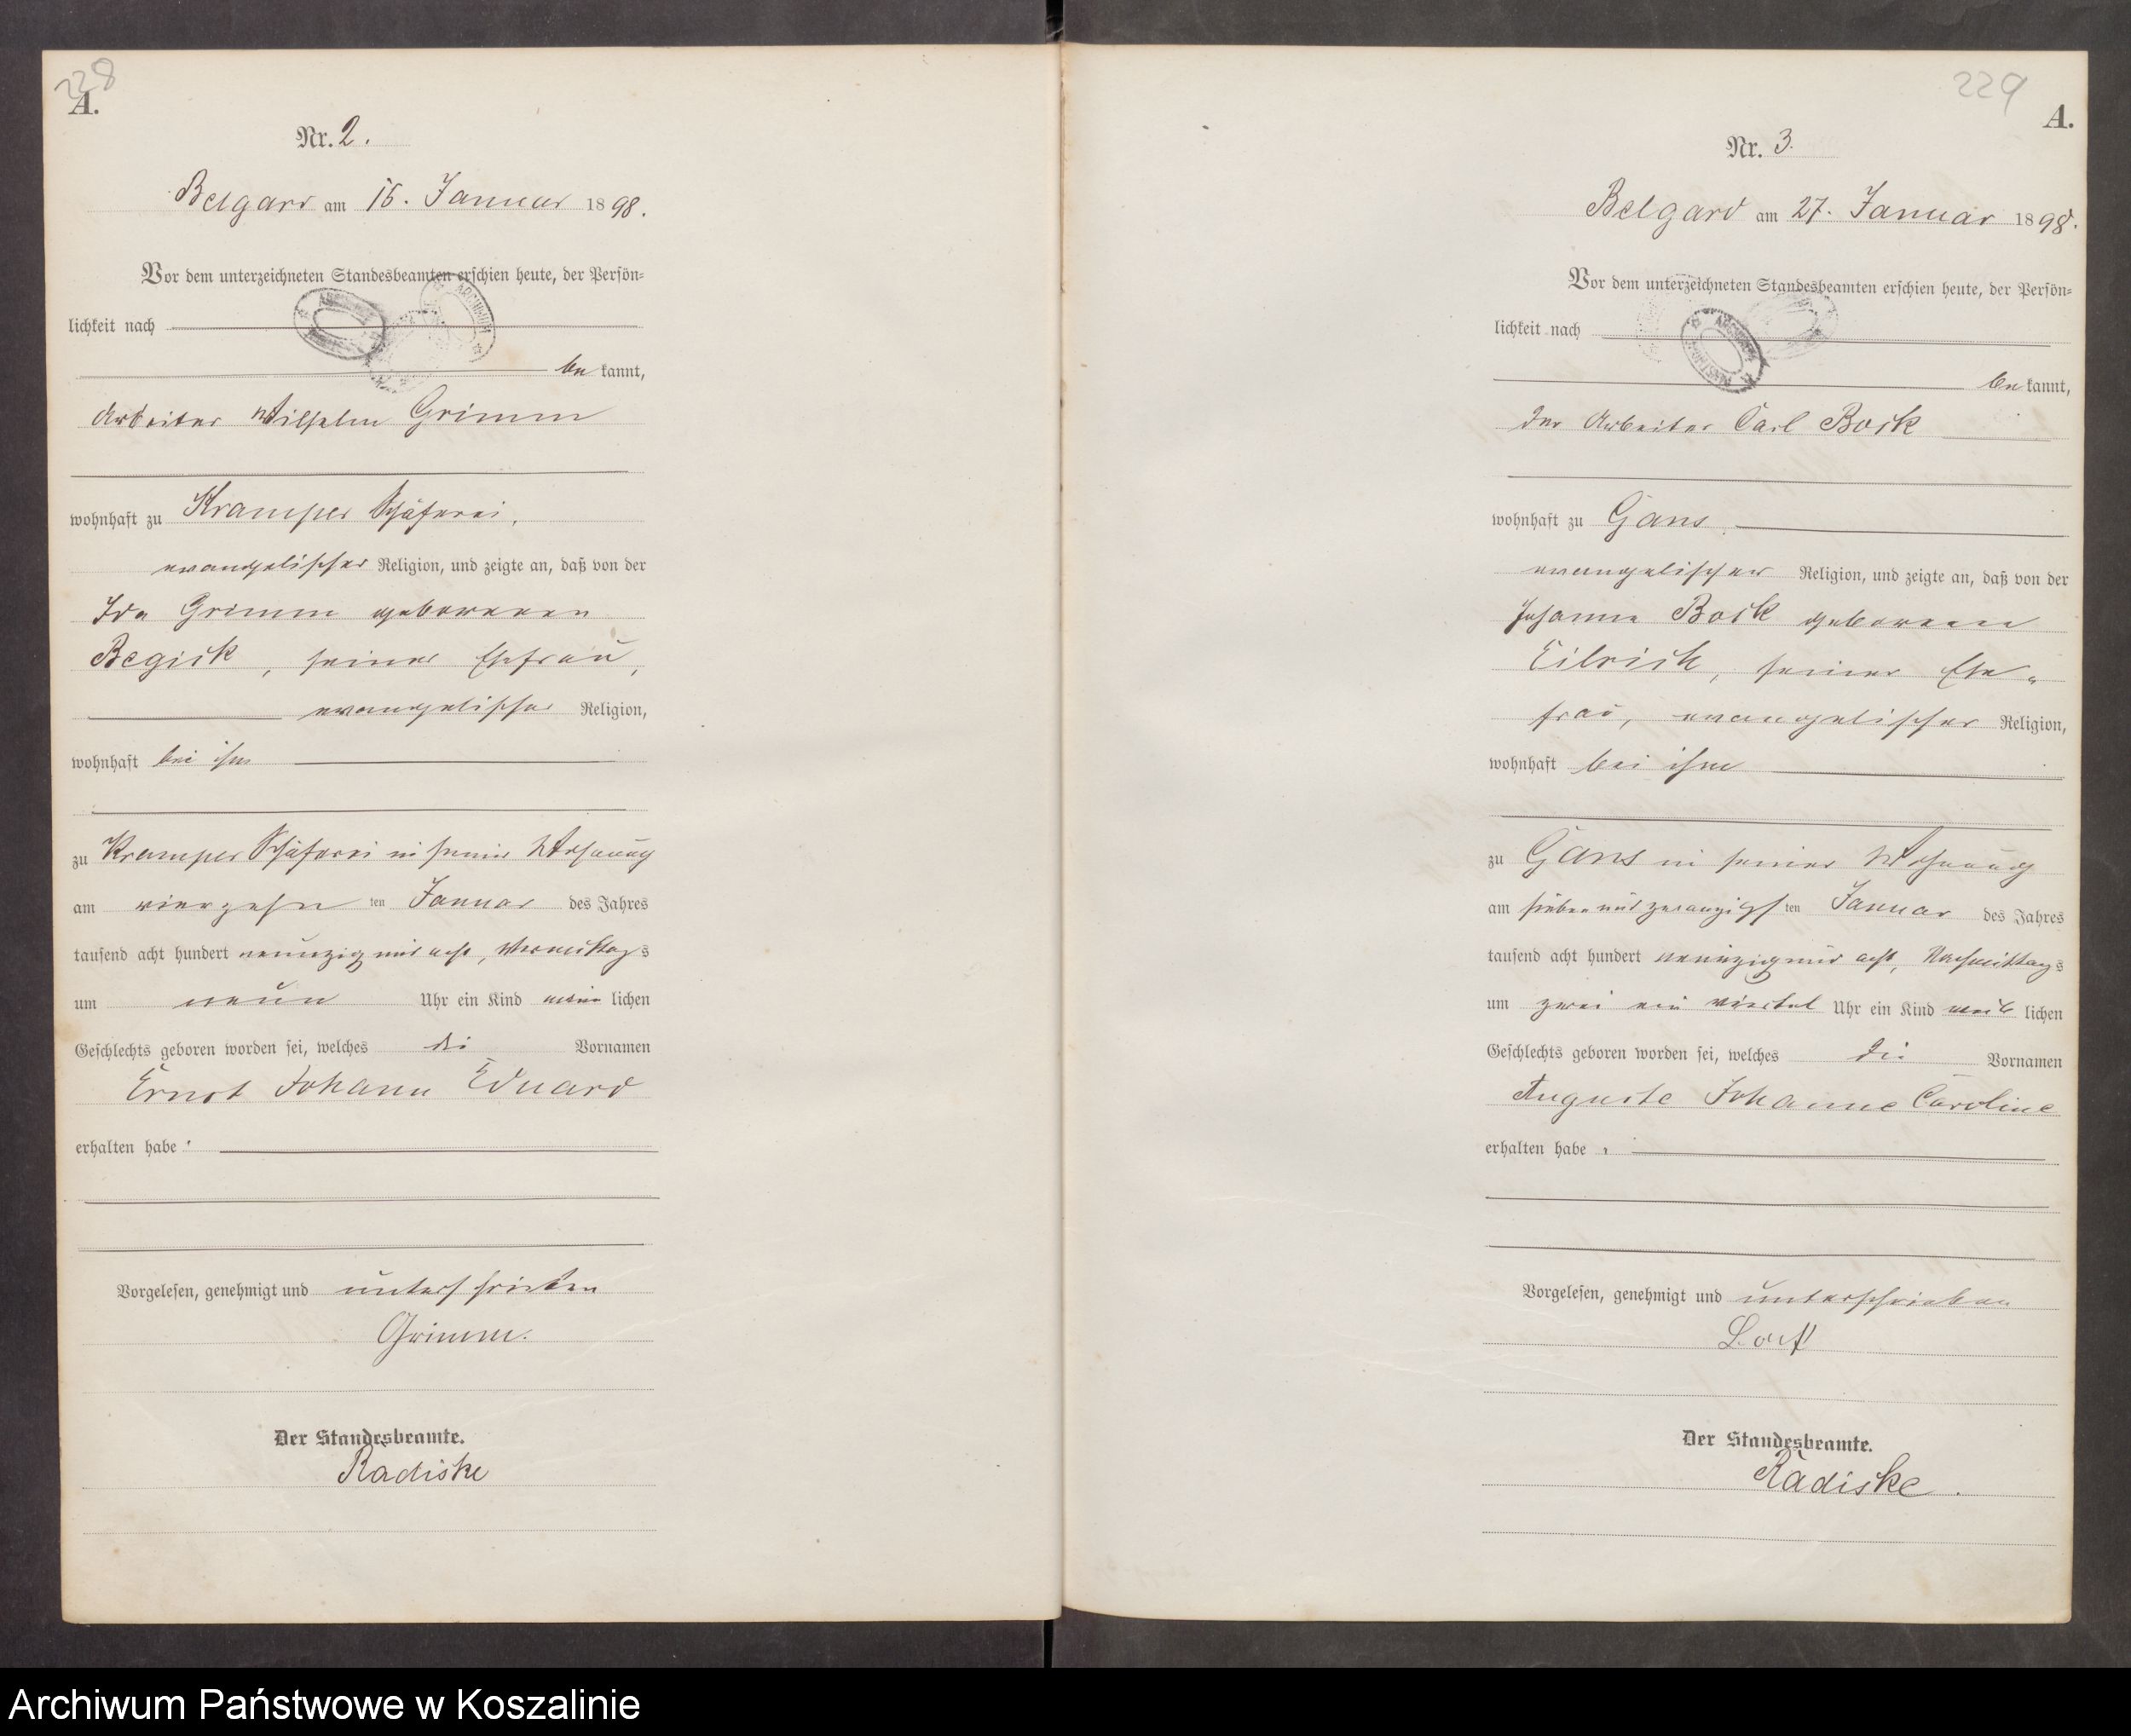 228
A.
Nr. 2.
Belgard am 16. Januar 1898.
Vor dem unterzeichneten Standesbeamten erschien heute, der Persön=
lichkeit nach
be kannt,
Arbeiter Wilhelm Grimm
wohnhaft zu Kramper Schäferei,
evangelischer Religion, und zeigte an, daß von der
Ida Grimm geborenen
Begick, seiner Ehefrau,
evangelischer Religion,
wohnhaft bei ihm
zu Kramper Schäferei in seiner Wohnung
am vierzehn ten Januar des Jahres
tausend acht hundert neunzig und acht, Vormittags
um neun Uhr ein Kind männ lichen
Geschlechts geboren worden sei, welches die Vornamen
Ernst Johann Eduard
erhalten habe.
Vorgelesen, genehmigt und unterschrieben
Grimm.
Der Standesbeamte.
Radiske
229
A.
Nr. 3.
Belgard am 27. Januar 1898.
Vor dem unterzeichneten Standesbeamten erschien heute, der Persön=
lichkeit nach
be kannt,
der Arbeiter Carl Bock
wohnhaft zu Gans,
evangelischer Religion, und zeigte an, daß von der
Johanne Bock geborenen
Eilrich, seiner Ehe„
frau, evangelischer Religion,
wohnhaft bei ihm
zu Gans in seiner Wohnung
am sieben und zwanzigs ten Januar des Jahres
tausend acht hundert neunzig und acht, Nachmittags
um zwei ein viertel Uhr ein Kind weib lichen
Geschlechts geboren worden sei, welches die Vornamen
Auguste Johanne Caroline
erhalten habe.
Vorgelesen, genehmigt und unterschrieben
Der Standesbeamte.
Radiske.
Archiwum Państwowe w Koszalinie